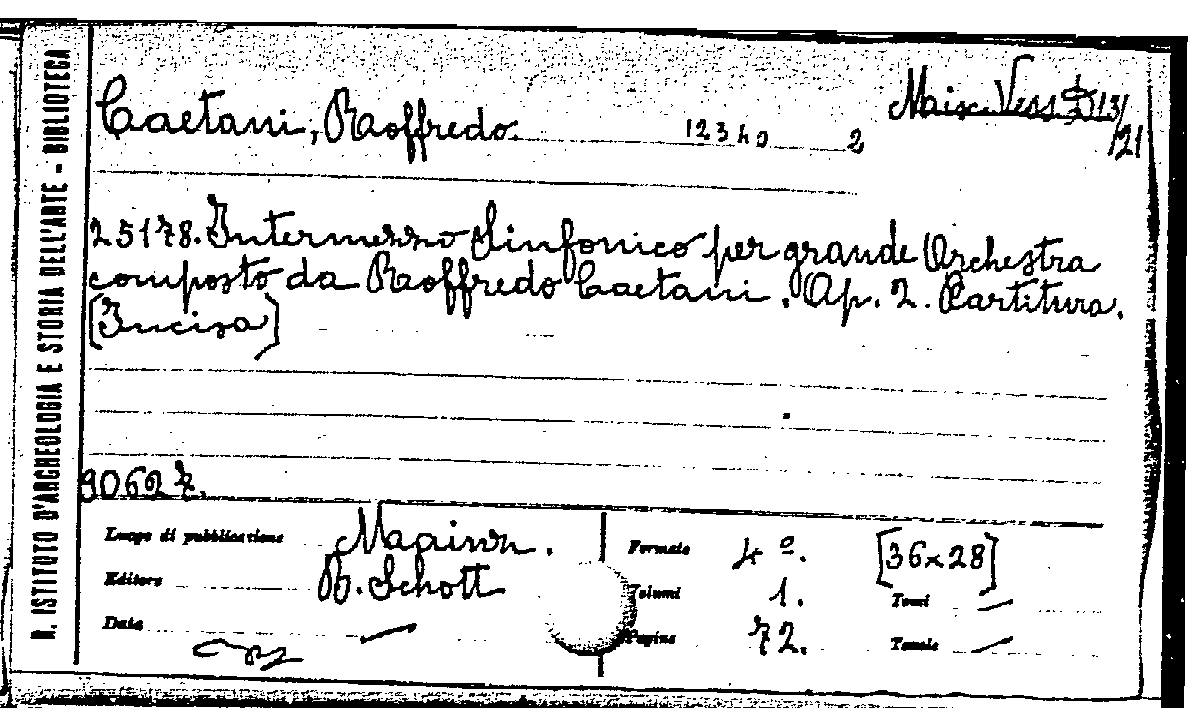 R. ISTITUTO D'ARCHEOLOGIA E STORIA DELL'ARTE - BIBLIOTECA
Caetani, Roffredo. 12340 2 Misc. Vess. D 13/
21
25178. Intermezzo Sinfonico per grande Orchestra
composto da Roffredo Caetani. Op. 2. Partitura.
[Incisa]
90627.
Luogo di pubblicazione Mainz. Formato 4º. [36x28]
Editore B. Schott Volumi 1. Tomi —
Data — Pagine 72. Tavole —